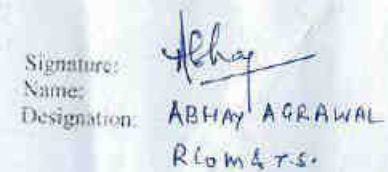 Signature: Abhay
Name:
Designation: ABHAY AGRAWAL